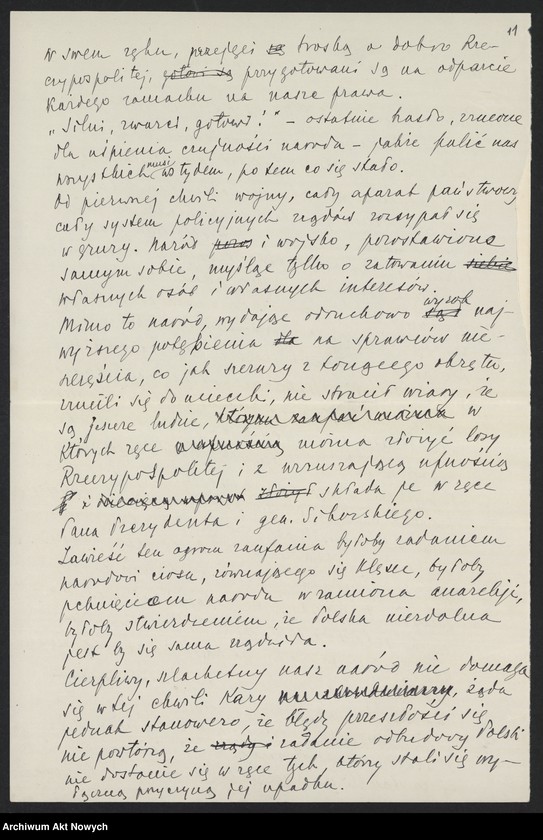 11
w swem ręku, przejęci są troską o dobro Rze-
czypospolitej, gotowi są przygotowani są na odparcie
każdego zamachu na nasze prawa.
„Silni, zwarci, gotowi!" – ostatnie hasło, rzucone
dla uśpienia czujności narodu – jakże palić nas
wszystkich musi wstydem, po tem co się stało.
Od pierwszej chwili wojny, cały aparat państwowy
cały system policyjnych rządów rozsypał się
w gruzy. Naród i wojsko, pozostawione
samym sobie, myśląc tylko o ratowaniu siebie
własnych osób i własnych interesów.
Mimo to naród, wydając odruchowo wyrok naj-
wyższego potępienia dla na sprawców nie-
szczęścia, co jak szczury z tonącego okrętu,
rzucili się do ucieczki, nie stracił wiary, że
są jeszcze ludzie, w
których ręce można złożyć losy
Rzeczypospolitej i z wzruszającą ufnością
i złożył składa je w ręce
Pana Prezydenta i gen. Sikorskiego.
Zawieść ten ogrom zaufania byłoby zadaniem
narodowi ciosu, równającego się klęsce, byłoby
pchnięciem narodu w ramiona anarchji,
byłoby stwierdzeniem, że Polska niezdolna
jest by się sama rządziła.
Cierpliwy, szlachetny nasz naród nie domaga
się w tej chwili kary, żąda
jednak stanowczo, że błędy przeszłości się
nie powtórzą, że rządy i zadanie odbudowy Polski
nie dostanie się w ręce tych, którzy stali się wy-
łączną przyczyną jej upadku.
Archiwum Akt Nowych